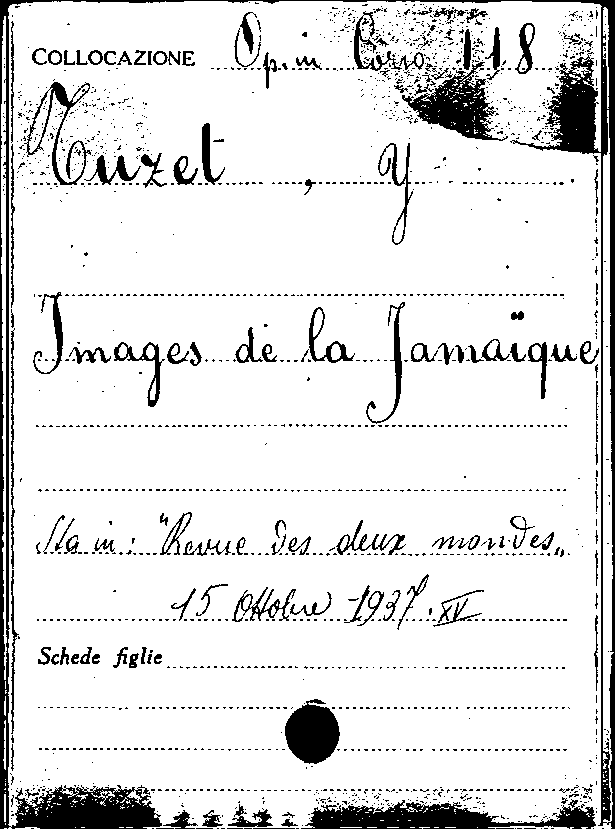 COLLOCAZIONE Op. in Corso 118
Tuzet, Y
Images de la Jamaïque
Sta in: "Revue des deux mondes„
15 Ottobre 1937. XV
Schede figlie